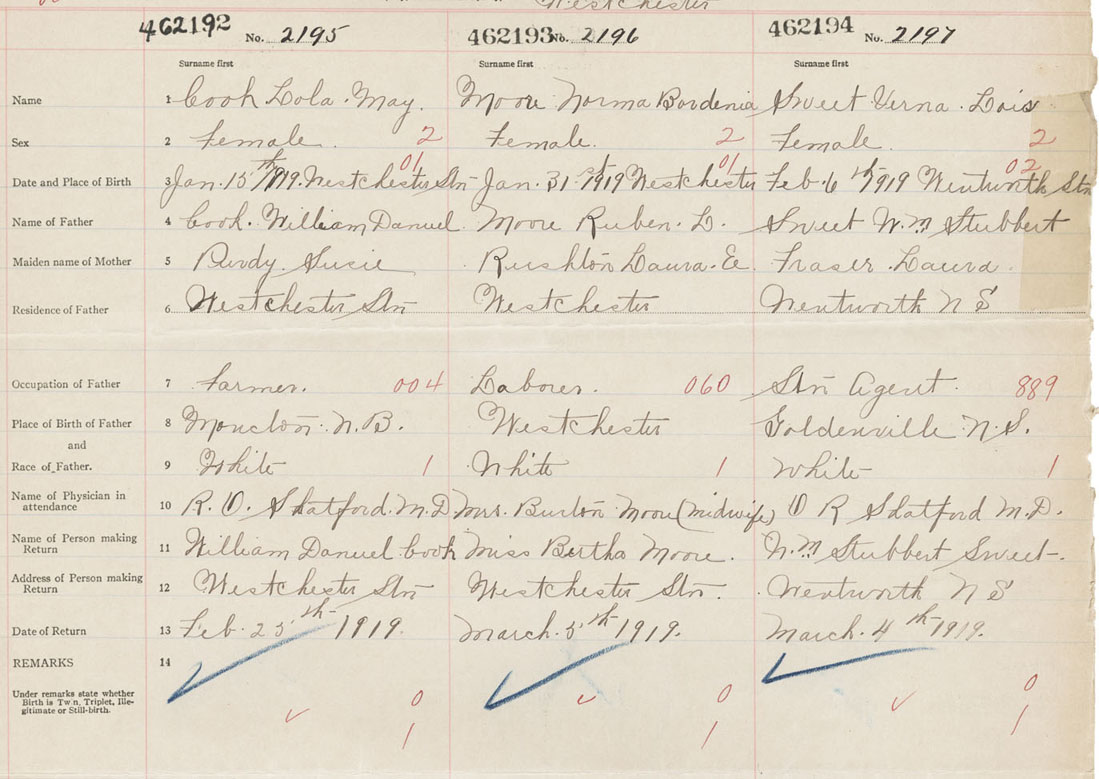 Westchester
462192 No. 2195 462193 No. 2196 462194 No. 2197
Surname first Surname first Surname first
Name 1 Cook Lola. May. Moore Norma Bordenia Sweet Verna. Lois
Sex 2 Female. 2 Female. 2 Female. 2
01 01 02
Date and Place of Birth 3 Jan. 15th 1919. Westchester Stn Jan. 31st 1919 Westchester Feb. 6th 1919 Wentworth Stn
Name of Father 4 Cook. William Danuel. Moore Ruben. L. Sweet Wm Stubbert
Maiden name of Mother 5 Purdy. Susie Rushton Laura. E. Fraser. Laura.
Residence of Father 6 Westchester Stn Westchester Wentworth N S
Occupation of Father 7 Farmer. 004 Laborer. 060 Stn Agent. 889
Place of Birth of Father 8 Moncton. N.B. Westchester Goldenville N.S.
and
Race of Father. 9 White 1 White 1 White 1
Name of Physician in attendance 10 R. O. Shatford. M.D. Mrs. Burton Moore (midwife) O R Shatford M.D.
Name of Person making Return 11 William Danuel Cook Miss Bertha Moore. Wm Stubbert Sweet.
Address of Person making Return 12 Westchester Stn Westchester Stn. Wentworth N S
Date of Return 13 Feb. 25th 1919. March. 5th 1919. March. 4th 1919.
REMARKS 14
Under remarks state whether
Birth is Twin, Triplet, Ille-
gitimate or Still-birth.
0 0 0
1 1 1